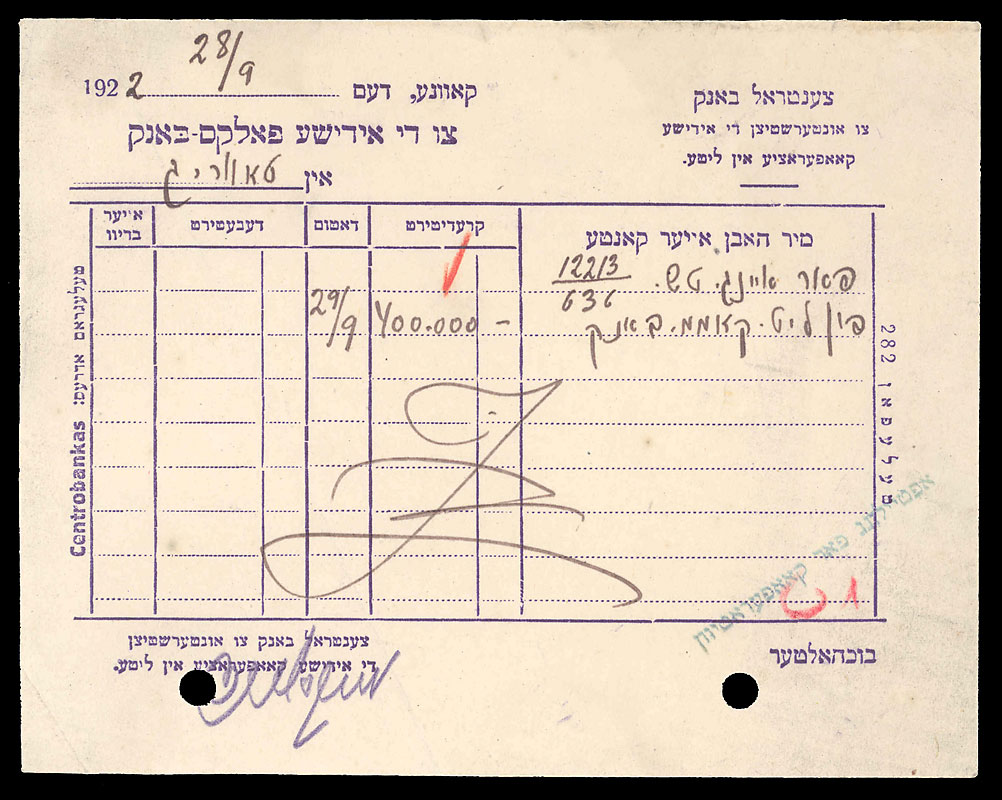 28/9
קאוונע, דעם 1922
צענטראל באנק
צו אונטערשטיצן די אידישע
קאאפעראציע אין ליטע.
צו די אידישע פאלקס-באנק
אין טאווריג
מיר האבן אייער קאנטע
קרעדיטירט
דאטום
דעבעטירט
אייער בריוו
פאר איינג. טש. 12213/636
פון ליט. קאממ. באנק
29/9
400.000 –
טעלעגראם אדרעס: Centrobankas
טעלעפאן 282
אפטיילונג פאר קאאפעראטיוון
1
בוכהאלטער
צענטראל באנק צו אונטערשטיצן
די אידישע קאאפעראציע אין ליטע.